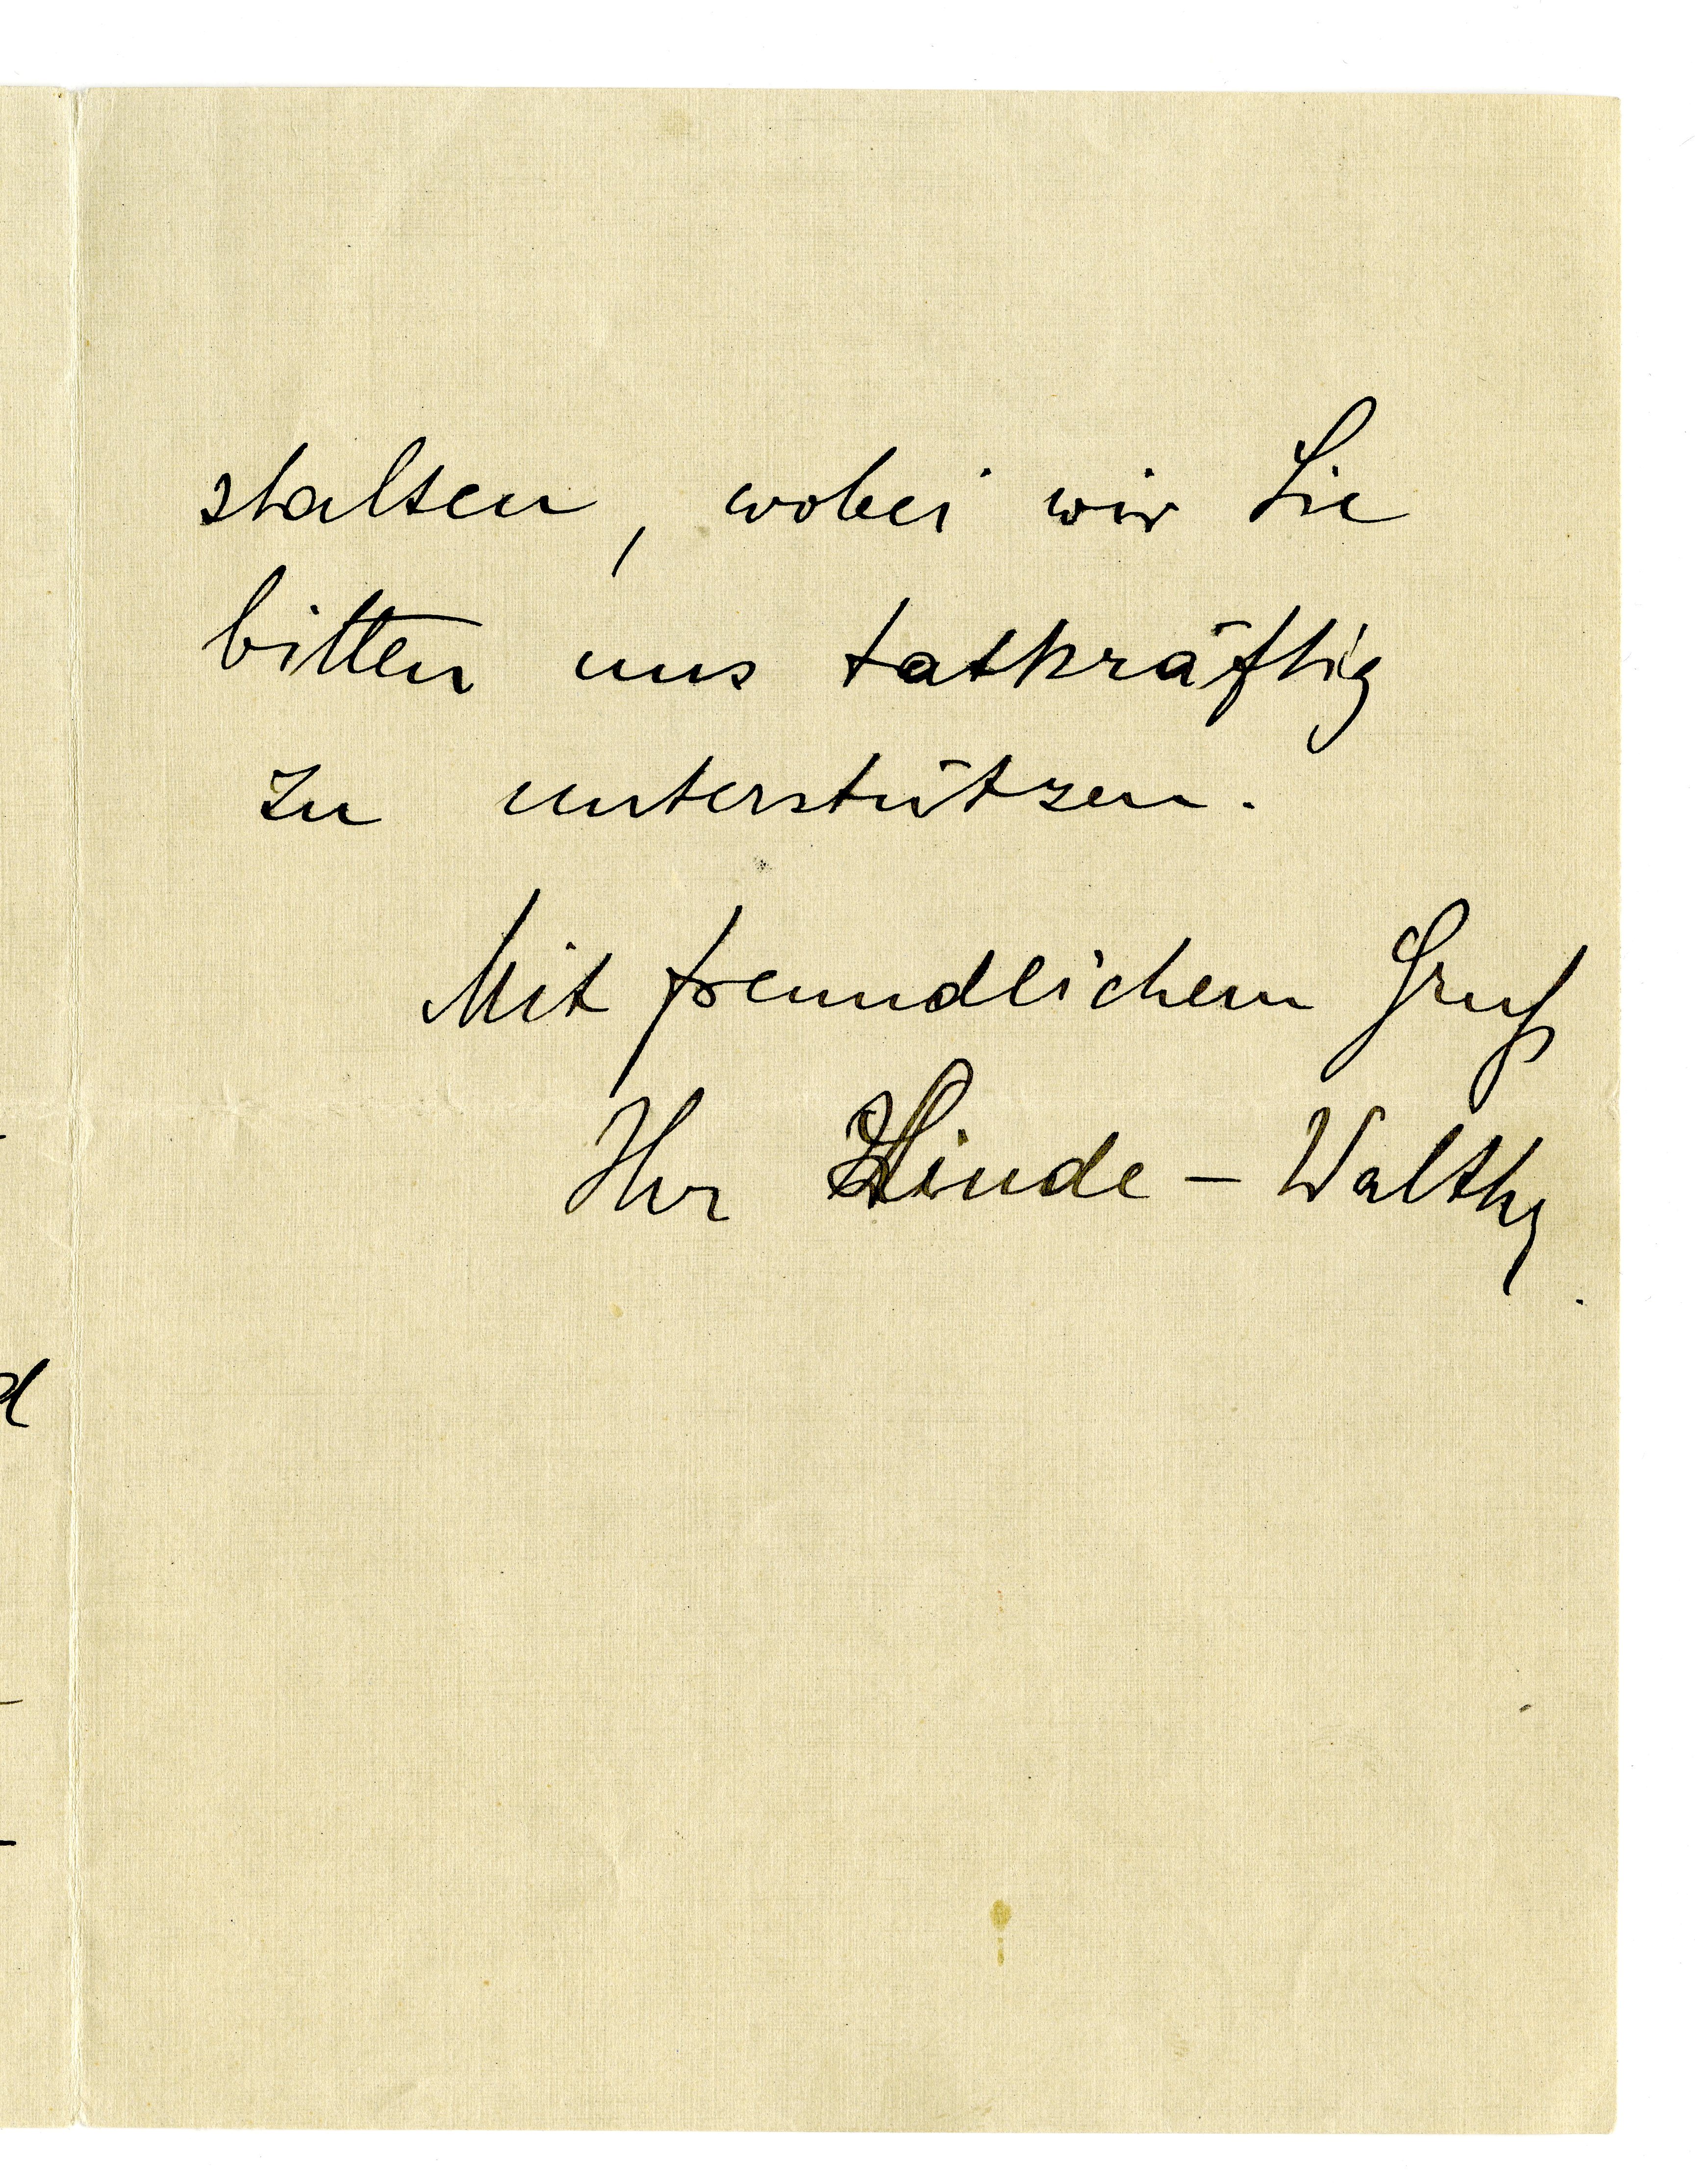 stalten, wobei wir Sie
bitten uns tatkräftig
zu unterstützen.
Mit freundlichem Gruß
Ihr Hinde - Walther
d